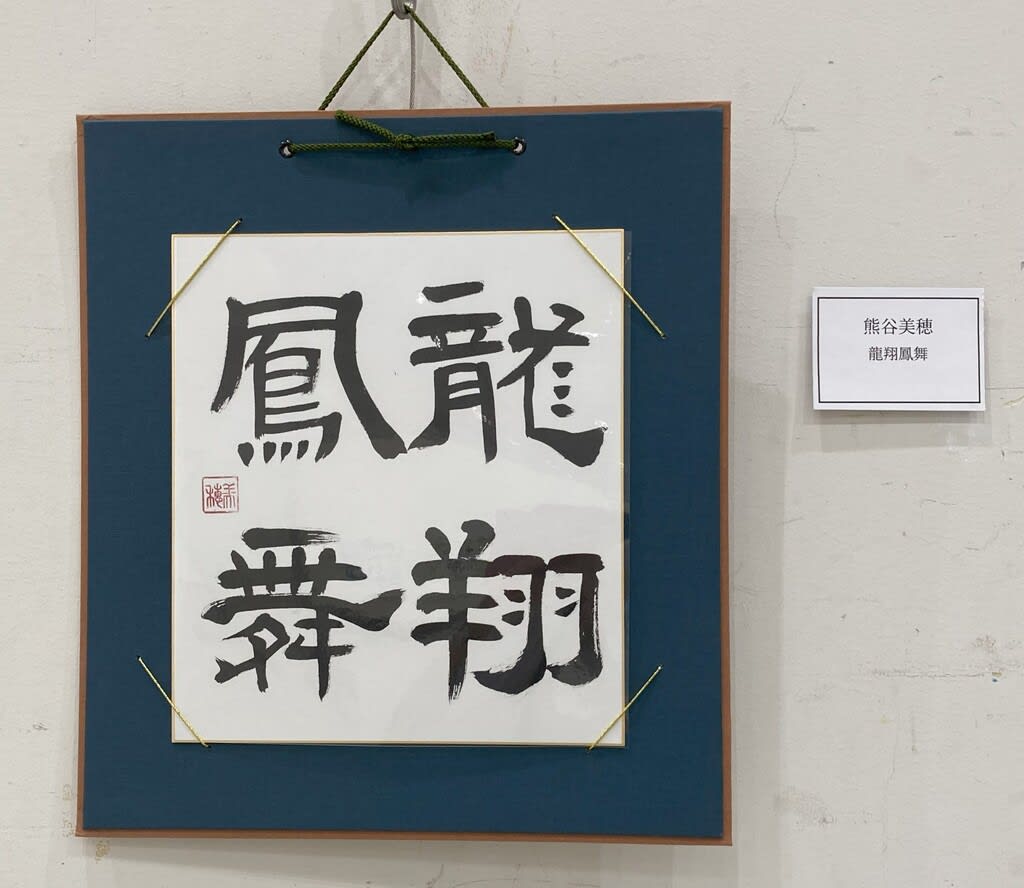 龍翔
鳳舞
熊谷美穂
龍翔鳳舞